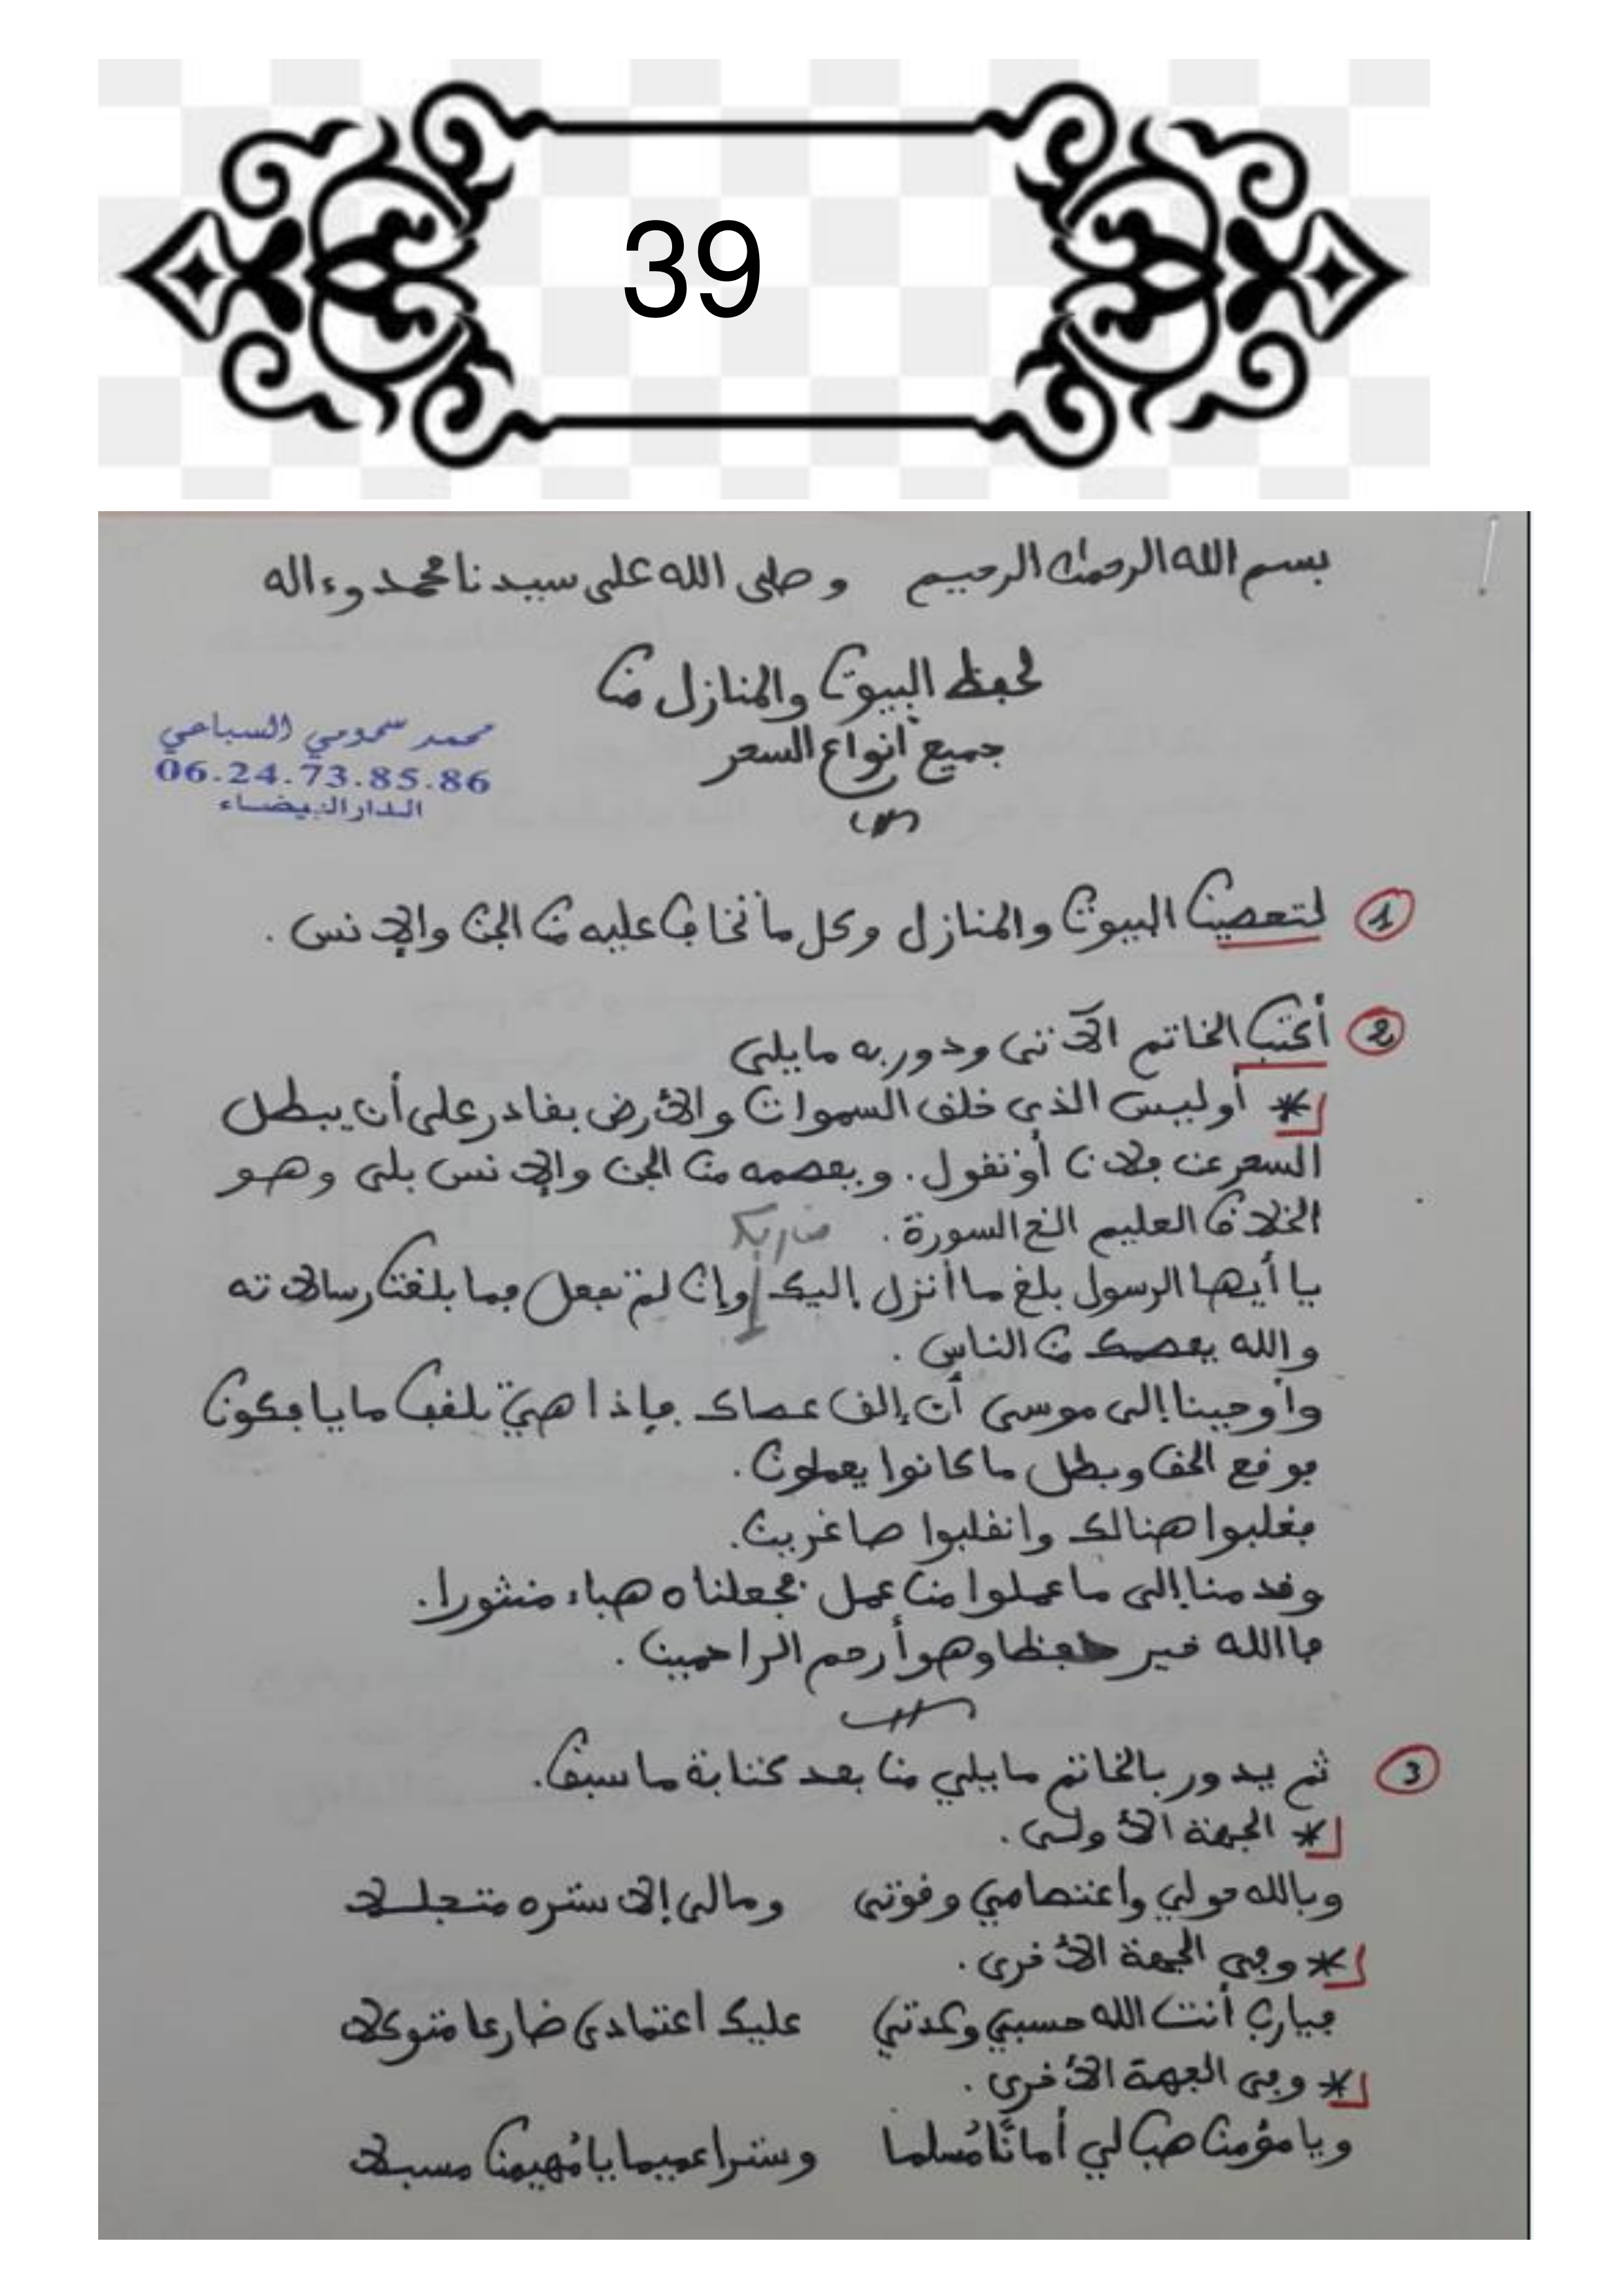 39
بسم الله الرحمن الرحيم وصلى الله على سيدنا محمد وءاله
لحفظ البيوت والمنازل من
جميع أنواع السحر
محمد سمومي السباعي
06.24.73.85.86
الدار البيضاء
1 لتحصين البيوت والمنازل وكل ما تخاف عليه من الجن والإنس.
2 أكتب الخاتم الآتي ودور به مايلي
* أوليس الذي خلق السموات والأرض بقادر على أن يبطل
السحر عن فلان أو تقول. ويعصمه من الجن والإنس بلى وهو
الخلاق العليم الخ السورة.
من ربك
يا أيها الرسول بلغ ما أنزل إليك وإن لم تفعل فما بلغت رسالاته
والله يعصمك من الناس.
وأوحينا إلى موسى أن إلق عصاك فإذا هي تلقف ما يافكون
فوقع الحق وبطل ما كانوا يعملون.
فغلبوا هنالك وانقلبوا صاغرين.
وقدمنا إلى ما عملوا من عمل فجعلناه هباء منثورا.
فالله خير حفظا وهو أرحم الراحمين.
3 ثم يدور بالخاتم مايلي من بعد كتابة ما سبق.
* الجهة الأولى.
وبالله حولي واعتصامي وقوتي ومالي إلا ستره متجلـلا
* وفي الجهة الأخرى.
فيارب أنت الله حسبي وعدتي عليك اعتمادي ضارعا متوكلا
* وفي الجهة الأخرى.
ويا مؤمن هب لي أمانًا مُسلما وسترا عميما يا مُهيمن مسبلا